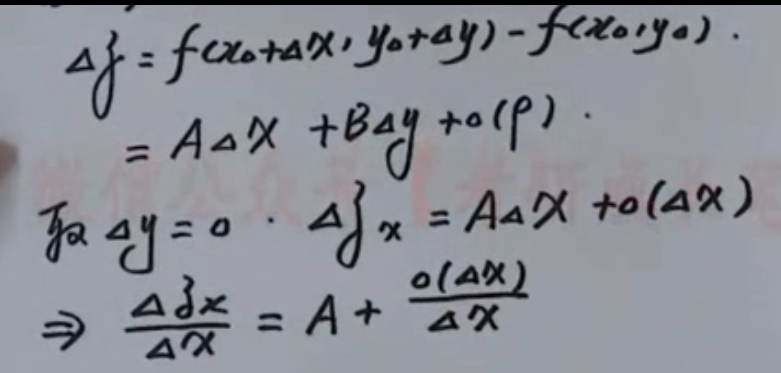 Δz = f(x₀+Δx, y₀+Δy) - f(x₀, y₀).
= AΔx + BΔy + o(ρ).
取 Δy = 0. Δzₓ = AΔx + o(Δx)
⇒ Δzₓ/Δx = A + o(Δx)/Δx